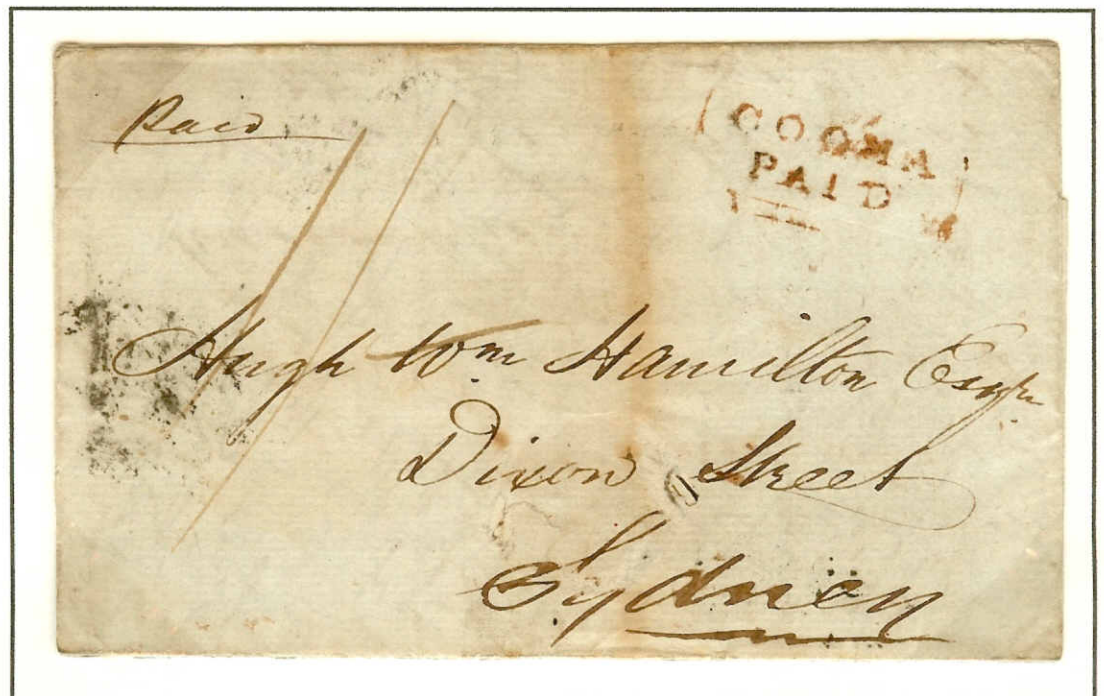 Paid
COOMA
PAID
Hugh Wm Hamilton Esqr.
Dixon Street
Sydney